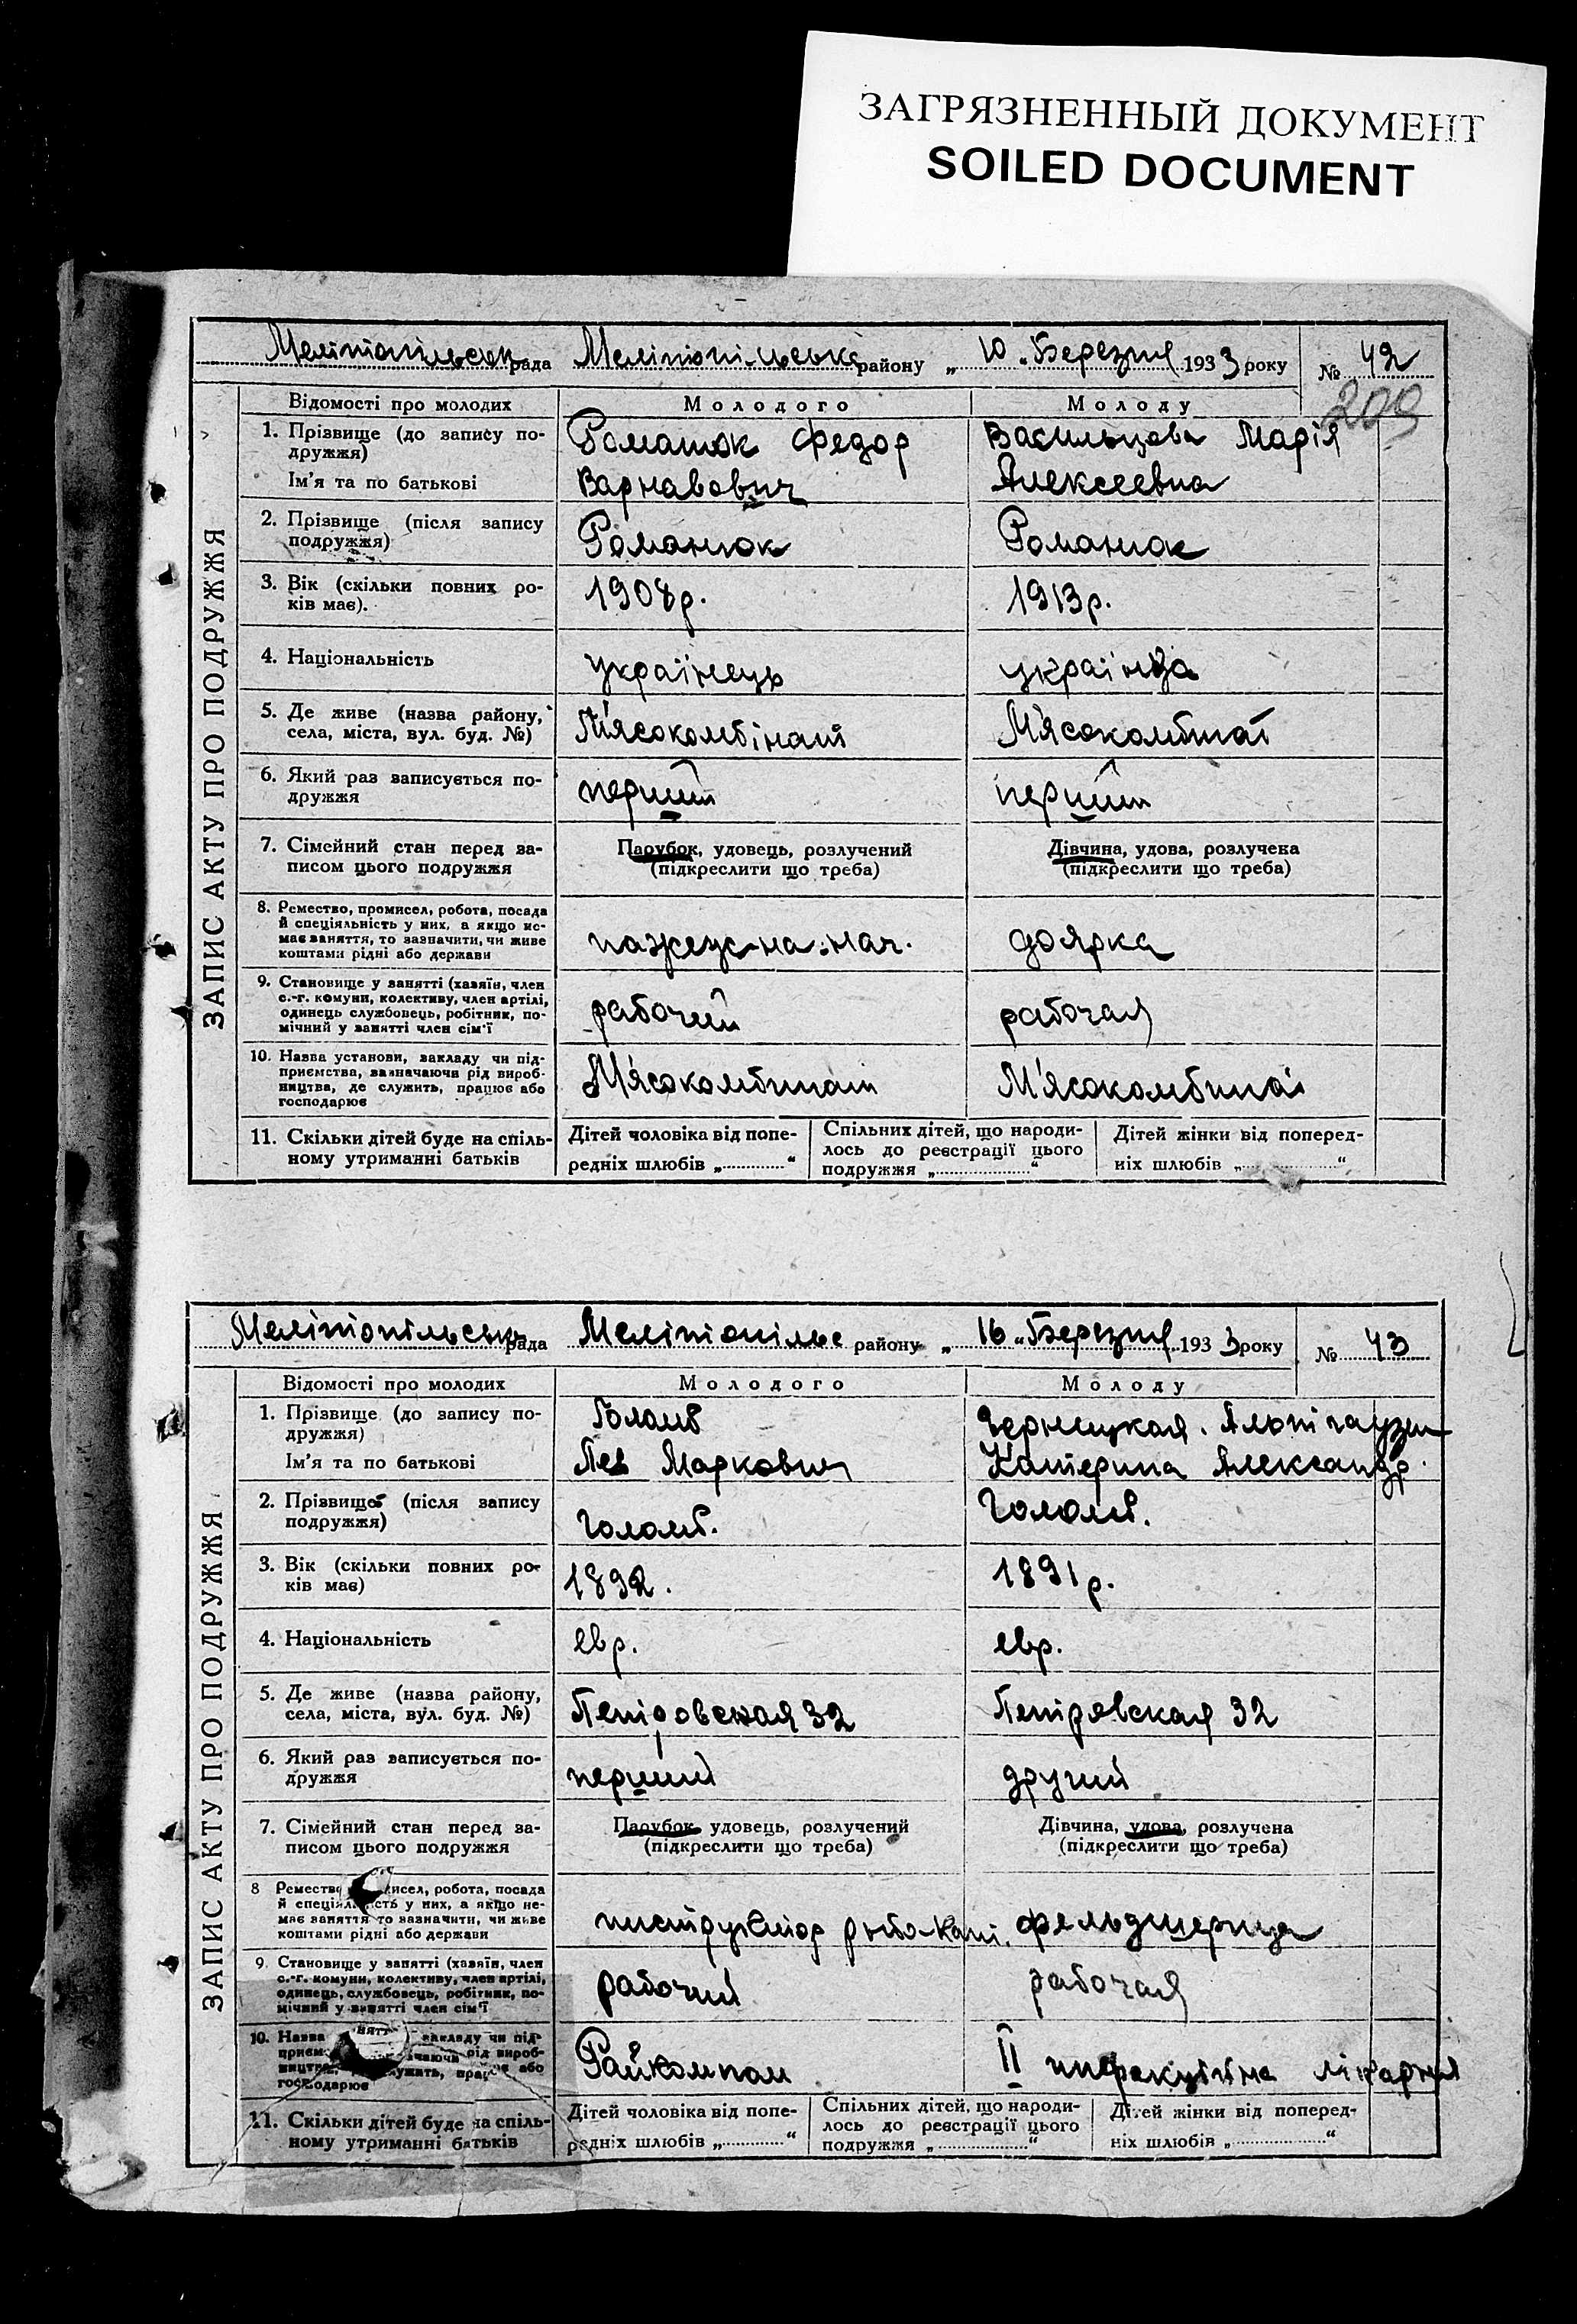 ЗАГРЯЗНЕННЫЙ ДОКУМЕНТ
SOILED DOCUMENT
ЗАПИС АКТУ ПРО ПОДРУЖЖЯ
Мелітопільськ рада Мелітопільськ району „ 10 „ Березня 1933 року № 42
209
Відомості про молодих Молодого Молоду
1. Прізвище (до запису по-
дружжя)
Ім'я та по батькові
Романюк Федор
Варнавович
Васильцова Марія
Алексеевна
2. Прізвище (після запису
подружжя)
Романюк Романюк
3. Вік (скільки повних ро-
ків має).
1908р. 1913р.
4. Національність українець українка
5. Де живе (назва району,
села, міста, вул. буд. №)
М'ясокомбінат М'ясокомбинат
6. Який раз записується по-
дружжя
перший перший
7. Сімейний стан перед за-
писом цього подружжя
Парубок, удовець, розлучений
(підкреслити що треба)
Дівчина, удова, розлучена
(підкреслити що треба)
8. Ремество, промисел, робота, посада
й спеціяльність у них, а якщо не-
має заняття, то зазначити, чи живе
коштами рідні або держави
нач. доярка
9. Становище у занятті (хазяїн, член
с.-г. комуни, колективу, член артілі,
одинець службовець, робітник, по-
мічний у занятті член сім'ї
рабочий рабочая
10. Назва установи, закладу чи під-
приємства, вазначаючи рід вироб-
ництва, де служить, працює або
господарює
М'ясокомбинат М'ясокомбинат
11. Скільки дітей буде на спіль-
ному утриманні батьків
Дітей чоловіка від попе-
редніх шлюбів „ “
Спільних дітей, що народи-
лось до реєстрації цього
подружжя „ “
Дітей жінки від поперед-
ніх шлюбів „ “
ЗАПИС АКТУ ПРО ПОДРУЖЖЯ
Мелітопільськ рада Мелітопільс району „ 16 „ Березня 1933 року № 43
Відомості про молодих Молодого Молоду
1. Прізвище (до запису по-
дружжя)
Ім'я та по батькові
Голомб
Лев Маркович
Чернецкая. Альтгаузен
Катерина Александр.
2. Прізвище (після запису
подружжя)
Голомб. Голомб.
3. Вік (скільки повних ро-
ків має)
1892. 1891р.
4. Національність евр. евр.
5. Де живе (назва району,
села, міста, вул. буд. №)
Петровская 32 Петровская 32
6. Який раз записується по-
дружжя
перший другий
7. Сімейний стан перед за-
писом цього подружжя
Парубок, удовець, розлучений
(підкреслити що треба)
Дівчина, удова, розлучена
(підкреслити що треба)
8 Ремество исел, робота, посада
й спеціяльність у них, а якщо не-
має заняття то зазначити, чи живе
коштами рідні або держави
инструктор фельдшерица
9. Становище у занятті (хазяїн, член
с.-г. комуни, колективу, член артілі,
одинець, службовець, робітник, по-
мічний у занятті член сім'ї
рабочий рабочая
10. Назва закладу чи під-
рід вироб-
або
господарює
Райкомпом II лікарня
11. Скільки дітей буде на спіль-
ному утриманні батьків
Дітей чоловіка від попе-
редніх шлюбів „ “
Спільних дітей, що народи-
лось до реєстрації цього
подружжя „ “
Дітей жінки від поперед-
ніх шлюбів „ “